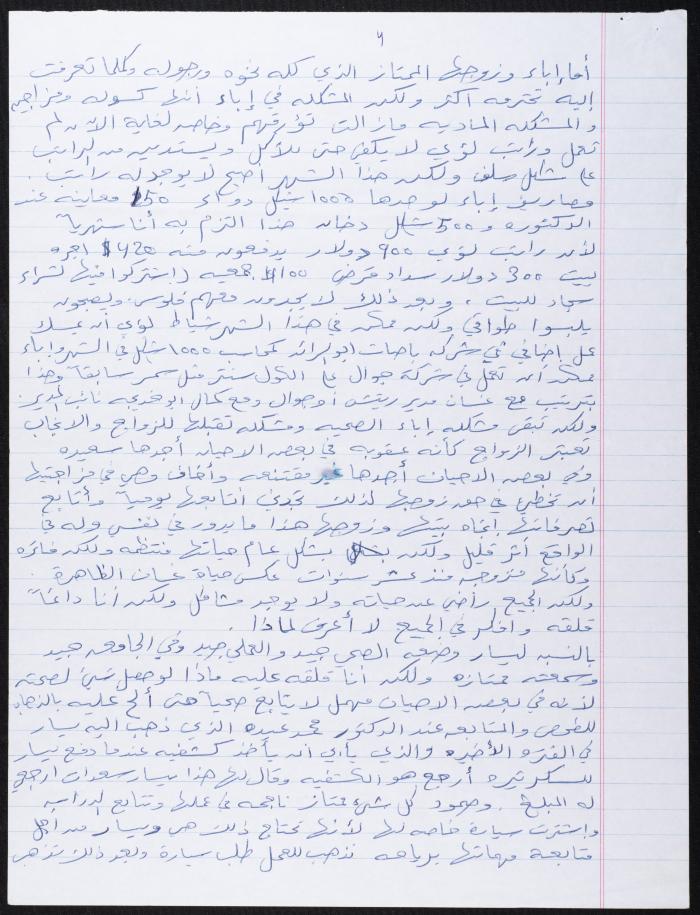 ٦
أما إباء وزوجها الممتاز الذي كله نخوه ورجوله وكلما تعرفت
إليه تحترمه أكثر ولكن المشكله في إباء أنها كسوله ومزاجيه
والمشكله الماديه مازالت تؤرقهم وخاصه لغاية الآن لم
تعمل وراتب لؤي لا يكفي حتى للأكل ويستدين من الراتب
على شكل سلف ولكن هذا الشهر أصبح لا يوجد له راتب .
ومصاريف إباء لوحدها ١٠٠٠ شيكل دواء 150 معاينه عند
الدكتوره و 500 شيكل دخان هذا التزم به أنا شهرياً
لأن راتب لؤي ٩٠٠ دولار يدفعون منه 420$ أجره
بيت ٣٠٠ دولار سداد قرض 100$ جمعيه (اشتركوا فيها لشراء
سجاد للبيت ، وبعد ذلك لا يجدون معهم فلوس ويصبحون
يلبسوا طواقي ولكن ممكن في هذا الشهر شباط لؤي أن يمسك
عمل إضافي في شركه باصات أبو كمحاسب ١٠٠٠ شيكل في الشهر وإباء
ممكن أن تعمل في شركة جوال على الكول سنتر مثل سمر سابقاً وهذا
بترتيب مع غسان مدير جوال ومع كمال أبو نائب المدير
ولكن تبقى مشكله إباء الصحيه ومشكله تقبلها للزواج والانجاب
تعتبر الزواج كأنه عقوبه في بعض الاحيان أجدها سعيده
وفي بعض الاحيان أجدها غير مقتنعه وأخاف وهي في مزاجيتها
أن تخطئ في حق زوجها لذلك تجدني أتابعها يومياً وأتابع
تصرفاتها اتجاه بيتها وزوجها هذا ما يدور في نفسي وله في
الواقع أثر قليل ولكن بشكل عام حياتها منتظمه ولكن فاتره
وكأنها متزوجه منذ عشر سنوات عكس حياة غسان الظاهرة .
ولكن الجميع راضي عن حياته ولا يوجد مشاكل ولكن أنا دائماً
قلقه وأفكر في الجميع لا أعرف لماذا .
بالنسبه ليسار وضعه الصحي جيد والعملي جيد وفي الجامعه جيد
وسمعته ممتازه ولكن أنا قلقه عليه ماذا لو حصل شيئ لصحته
لأنه في بعض الاحيان مهمل لا يتابع صحياً حتى ألح عليه بالذهاب
للفحص والمتابعه عند الدكتور محمد عبيده الذي ذهب اليه يسار
في الفتره الأخيره والذي يأبى أن يأخذ كشفيه عندما دفع يسار
للسكرتيره أرجع هو الكشفيه وقال لها هذا يسار سعدات ارجعي
له المبلغ . وصمود كل شيئ ممتاز ناجحه في عملها وتتابع الدراسه
واشترت سيارة خاصه لها لأنها تحتاج ذلك هي ويسار من أجل
متابعة مهماتها براحه تذهب للعمل طلب سيارة وبعد ذلك تذهب